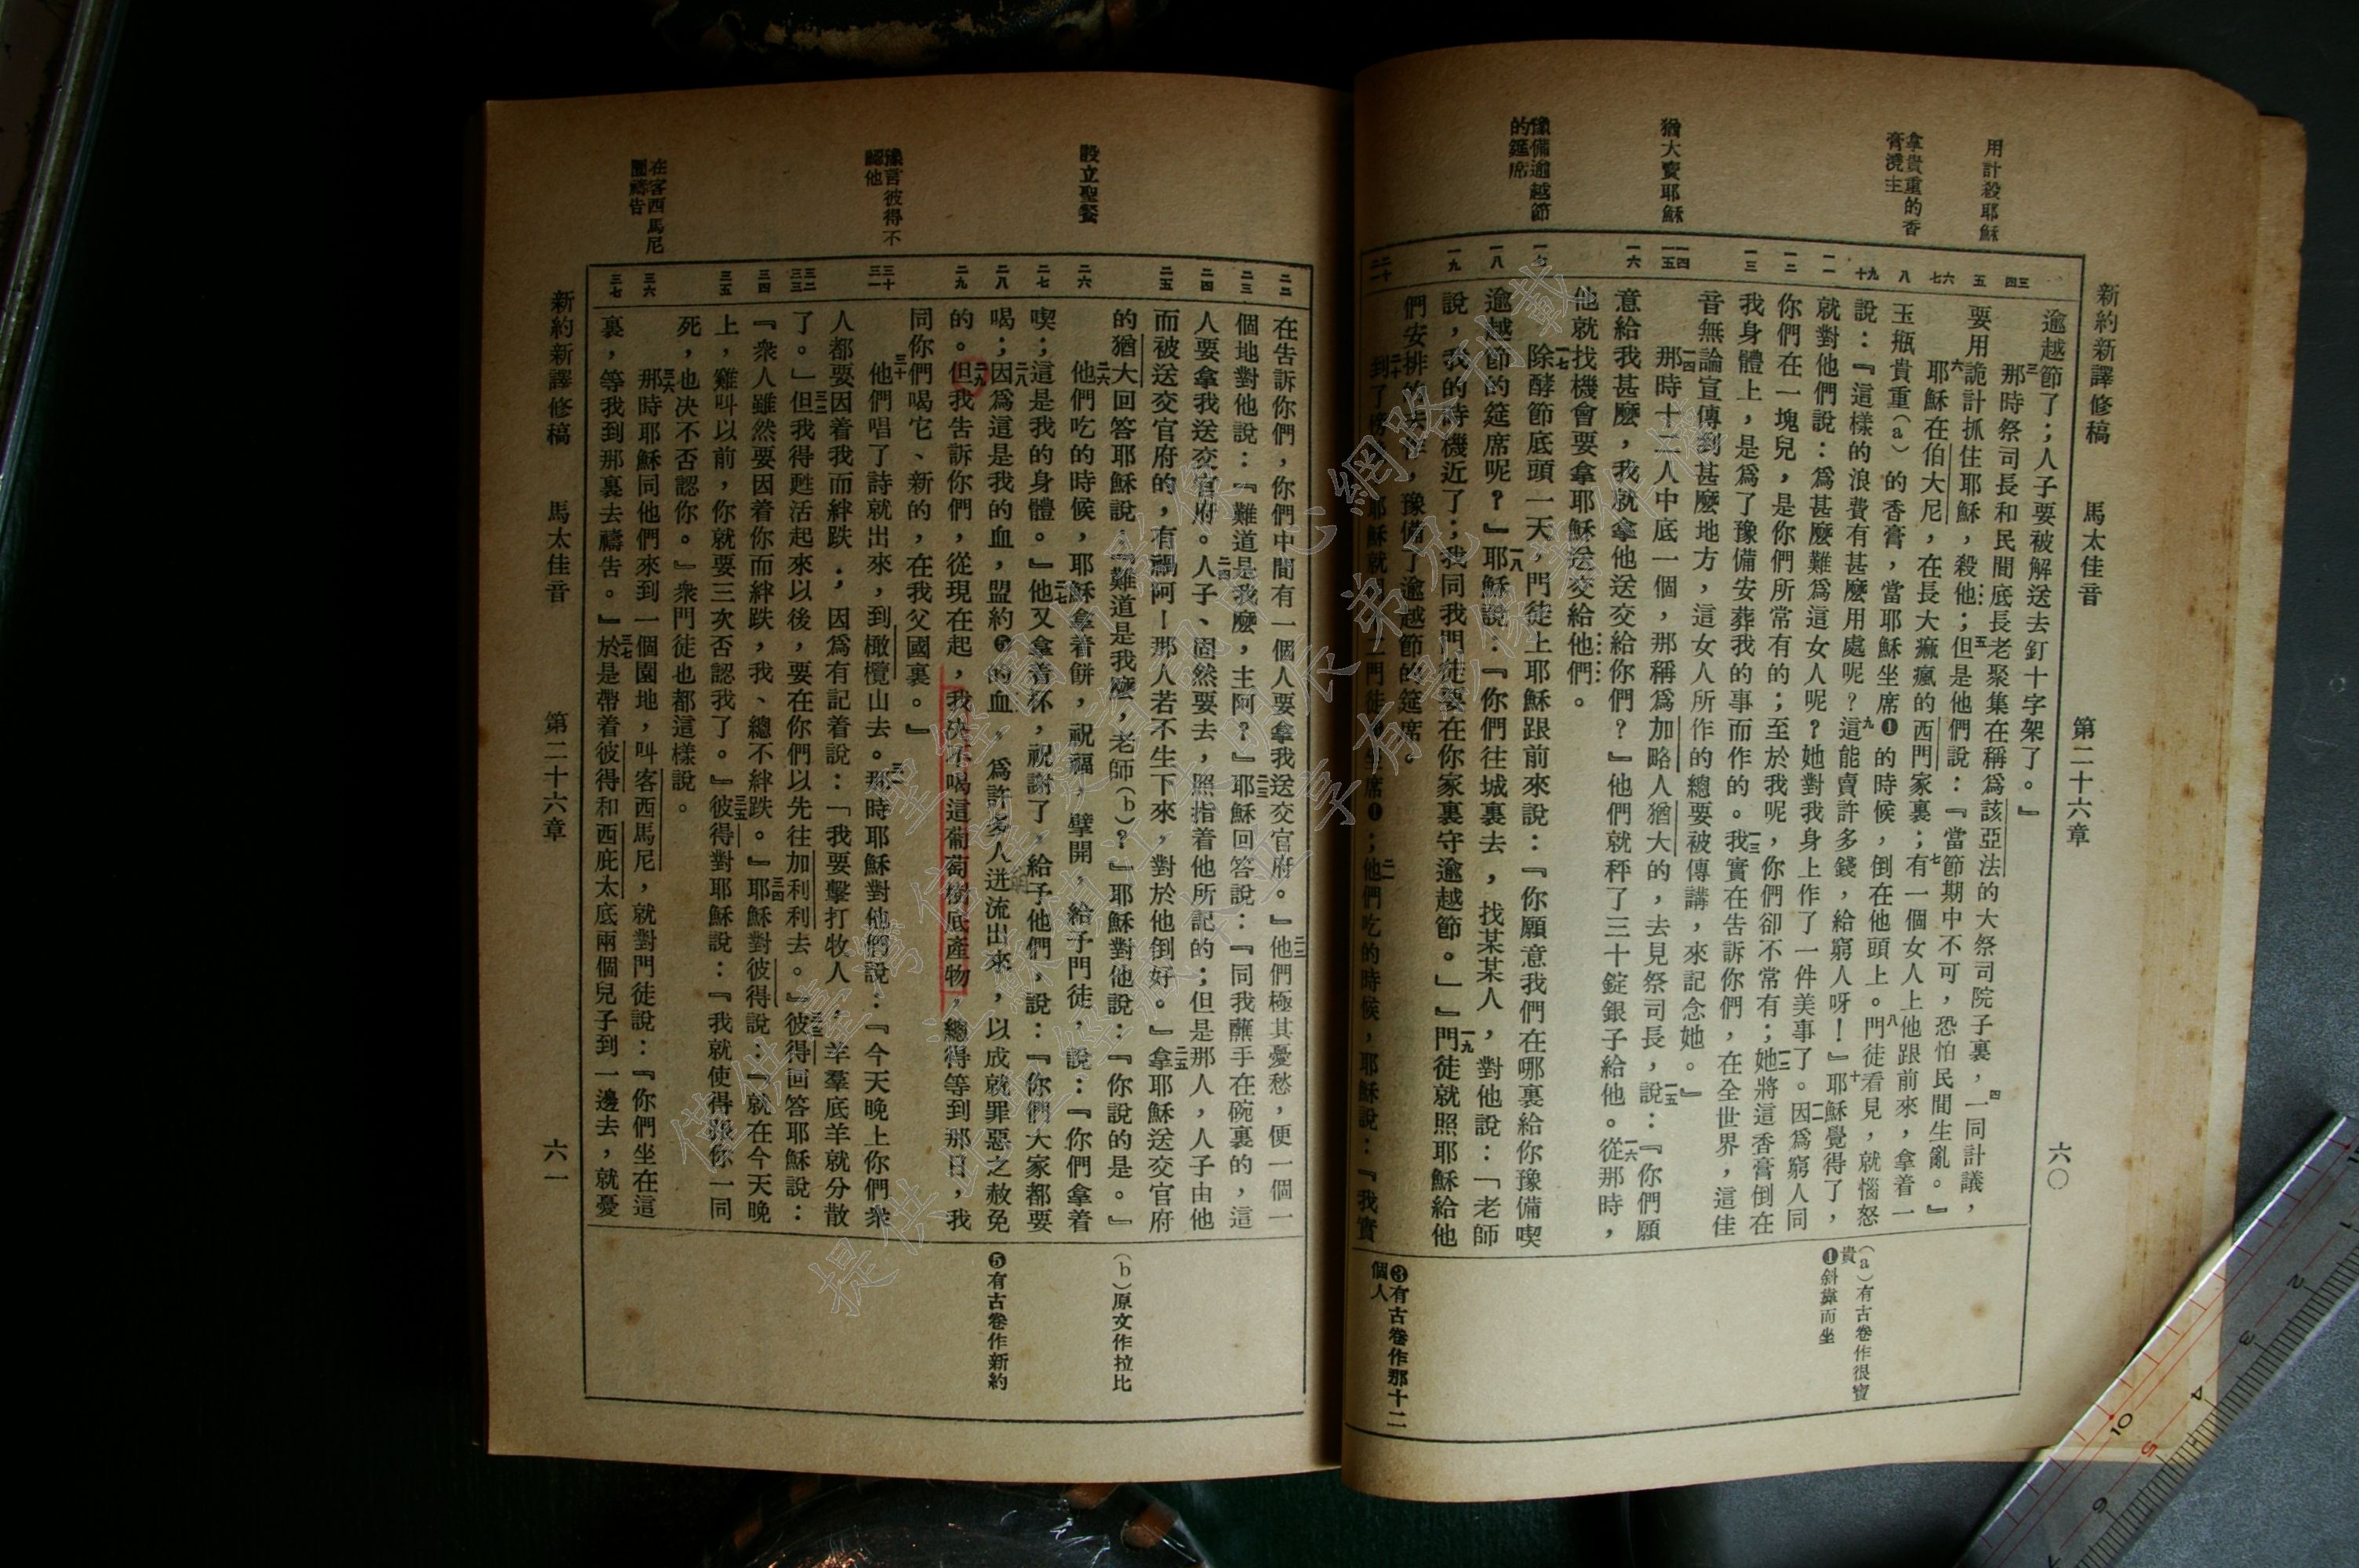 新約新譯修稿　馬太佳音　第二十六章　六〇
用計殺耶穌
拿貴重的香
膏澆主
猶大賣耶穌
豫備逾越節
的筵席
逾越節了；人子要被解送去釘十字架了。』
三那時祭司長和民間底長老聚集在稱爲該亞法的大祭司院子裏，四一同計議，
要用詭計抓住耶穌，殺他；五但是他們說：『當節期中不可，恐怕民間生亂。』
六耶穌在伯大尼，在長大痲瘋的西門家裏；七有一個女人上他跟前來，拿着一
玉瓶貴重（a）的香膏，當耶穌坐席❶的時候，倒在他頭上。八門徒看見，就惱怒
說：『這樣的浪費有甚麼用處呢？九這能賣許多錢，給窮人呀！』十耶穌覺得了，
就對他們說：爲甚麼難爲這女人呢？她對我身上作了一件美事了。一一因爲窮人同
你們在一塊兒，是你們所常有的；至於我呢，你們卻不常有；一二她將這香膏倒在
我身體上，是爲了豫備安葬我的事而作的。一三我實在告訴你們，在全世界，這佳
音無論宣傳到甚麼地方，這女人所作的總要被傳講，來記念她。』
一四那時十二人中底一個，那稱爲加略人猶大的，去見祭司長，一五說：『你們願
意給我甚麼，我就拿他送交給你們？』他們就秤了三十錠銀子給他。一六從那時，
他就找機會要拿耶穌送交給他們。
一七除酵節底頭一天，門徒上耶穌跟前來說：『你願意我們在哪裏給你豫備喫
逾越節的筵席呢？』一八耶穌說：『你們往城裏去，找某某人，對他說：「老師
說，我的時機近了；我同我門徒要在你家裏守逾越節。」』一九門徒就照耶穌給他
們安排的去作，豫備了逾越節的筵席。
二十到了傍晚，耶穌就同十二門徒❸坐席❶；二一他們吃的時候，耶穌說：『我實
（a）有古卷作很寶
貴
❶斜靠而坐
❸有古卷作那十二
個人
設立聖餐
豫言彼得不
認他
在客西馬尼
園禱告
在告訴你們，你們中間有一個人要拿我送交官府。』二二他們極其憂愁，便一個一
個地對他說：『難道是我麼，主阿？』二三耶穌回答說：『同我蘸手在碗裏的，這
人要拿我送交官府。二四人子、固然要去，照指着他所記的；但是那人，人子由他
而被送交官府的，有禍阿！那人若不生下來，對於他倒好。』二五拿耶穌送交官府
的猶大回答耶穌說：『難道是我麼，老師（b）？』耶穌對他說：『你說的是。』
二六他們吃的時候，耶穌拿着餅，祝福，擘開，給予門徒，說：『你們拿着
喫；這是我的身體。』二七他又拿着杯，祝謝了，給予他們，說：『你們大家都要
喝；二八因爲這是我的血，盟約❺的血，爲許多人迸流出來，以成就罪惡之赦免
的。二九但我告訴你們，從現在起，我決不喝這葡萄樹底產物，總得等到那日，我
同你們喝它、新的，在我父國裏。』
三十他們唱了詩就出來，到橄欖山去。三一那時耶穌對他們說：『今天晚上你們衆
人都要因着我而絆跌；因爲有記着說：「我要擊打牧人，羊羣底羊就分散
了。」三二但我得甦活起來以後，要在你們以先往加利利去。』三三彼得回答耶穌說：
『衆人雖然要因着你而絆跌，我、總不絆跌。』三四耶穌對彼得說：『就在今天晚
上，雞叫以前，你就要三次否認我了。』三五彼得對耶穌說：『我就使得跟你一同
死，也決不否認你。』衆門徒也都這樣說。
三六那時耶穌同他們來到一個園地，叫客西馬尼，就對門徒說：『你們坐在這
裏，等我到那裏去禱告。』三七於是帶着彼得和西庇太底兩個兒子到一邊去，就憂
（b）原文作拉比
❺有古卷作新約
新約新譯修稿　馬太佳音　第二十六章　六一